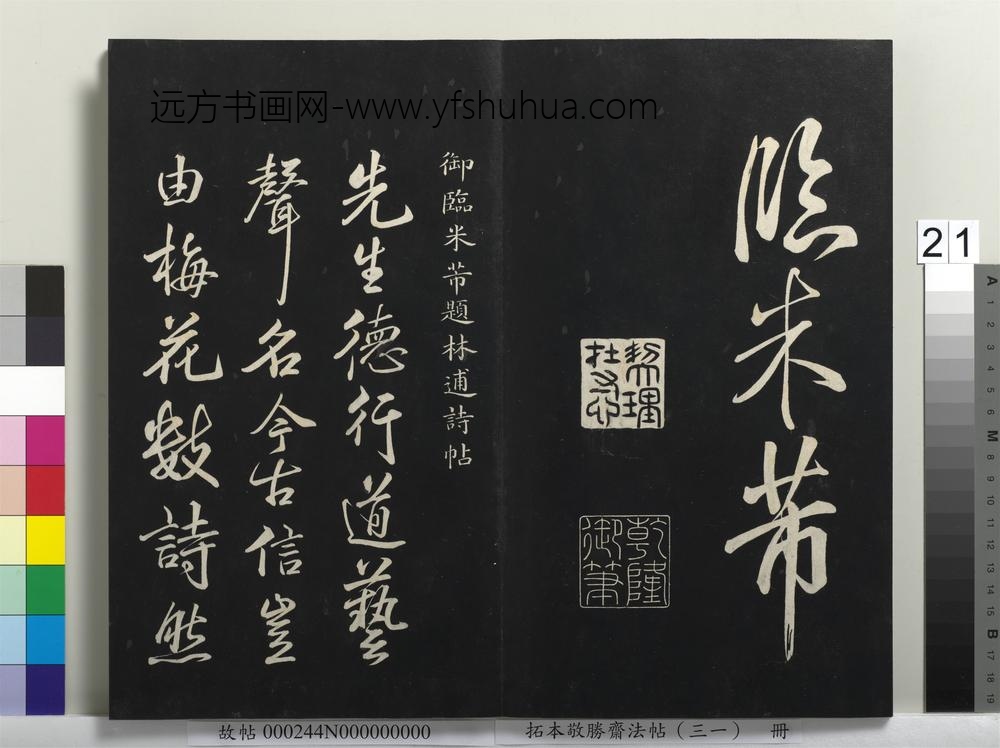 远方书画网-www.yfshuhua.com
臨米芾
契理
在寸心
乾隆
御筆
御臨米芾題林逋詩帖
先生德行道藝
聲名今古信豈
由梅花數詩然
21
A
1
2
3
4
5
6
M
8
9
10
11
12
13
14
15
B
17
18
19
故帖 000244N000000000
拓本敬勝齋法帖（三一） 冊